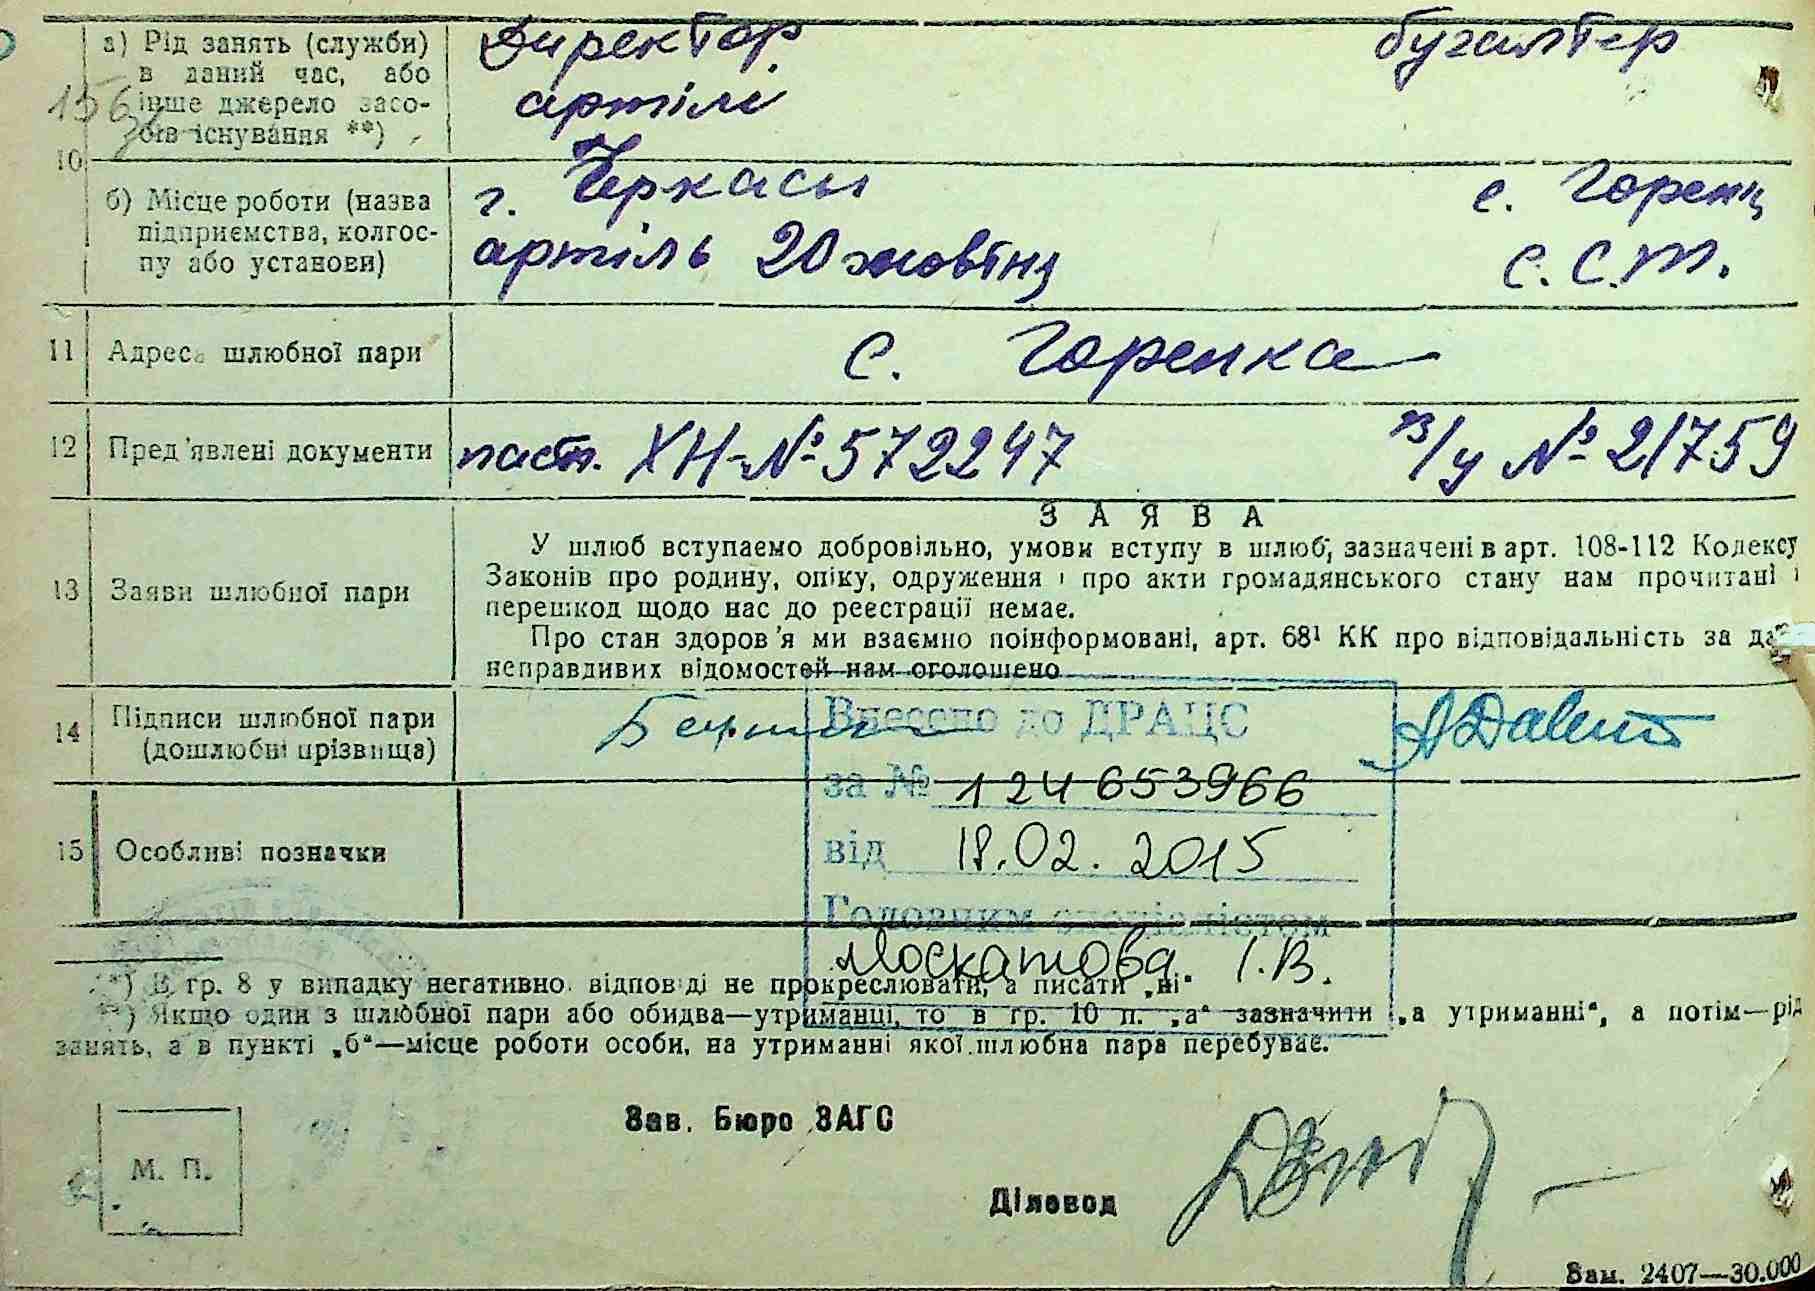 а) Рід занять (служби) Директор бугалтер
в даний час, або
інше джерело засо- артілі
бів існування **)
10
б) Місце роботи (назва г. Черкасы с. Горенц
підприємства, колгос- артіль 20 жовтня С.С.Т.
пу або установи)
11 Адреса шлюбної пари с. Горенка
12 Пред'явлені документи пасп. ХН-№ 572247 в/у № 21759
ЗАЯВА
У шлюб вступаємо добровільно, умови вступу в шлюб, зазначені в арт. 108-112 Кодексу
Законів про родину, опіку, одруження і про акти громадянського стану нам прочитані і
13 Заяви шлюбної пари
перешкод щодо нас до реєстрації немає.
Про стан здоров'я ми взаємно поінформовані, арт. 68¹ КК про відповідальність за да
неправдивих відомостей нам оголошено
14 Підписи шлюбної пари
(дошлюбні прізвища)
Внесено до ДРАЦС
за № 124653966
15 Особливі позначки
від 18.02.2015
Головним спеціалістом
Москатова І.В.
*) В гр. 8 у випадку негативно відповіді не прокреслювати, а писати „ні"
**) Якщо один з шлюбної пари або обидва—утриманці, то в гр. 10 п. „а" зазначити „а утриманні", а потім—рід
занять, а в пункті „б"—місце роботи особи, на утриманні якої шлюбна пара перебуває.
Зав. Бюро ЗАГС
М. П.
Діловод
Зам. 2407—30.000